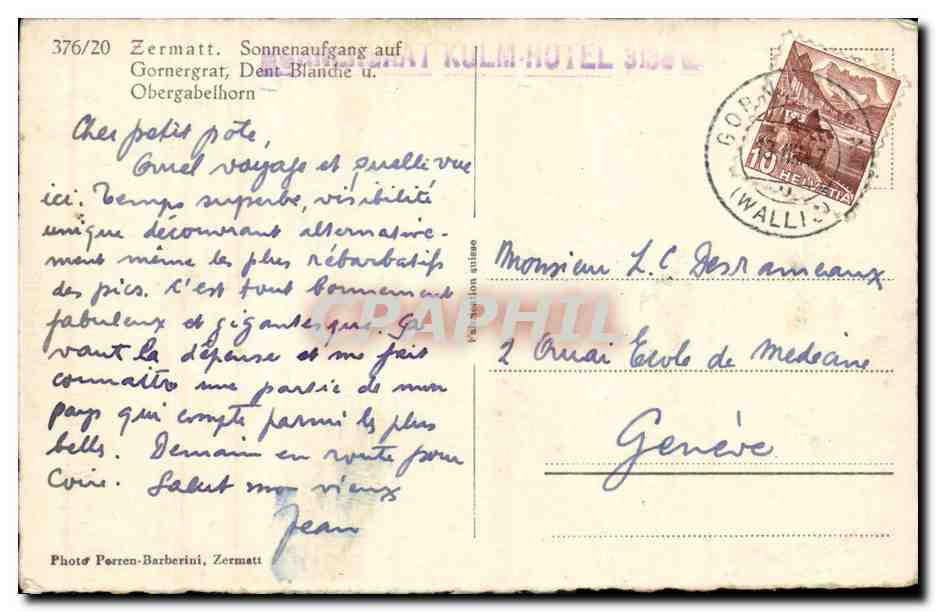 376/20 Zermatt. Sonnenaufgang auf
Gornergrat, Dent Blanche u.
Obergabelhorn
KULM-HOTEL
Cher petit pote,
Quel voyage et quelle vue
ici. Temps superbe, visibilité
unique découvrant alternative-
ment même les plus rébarbatifs
des pics. C'est tout bonnement
fabuleux et gigantesque. Ça
vaut la dépense et me fait
connaître une partie de mon
pays qui compte parmi les plus
belles. Demain en route pour
Coire. Salut mon vieux
Jean
Photo Perren-Barberini, Zermatt
Fabrication suisse
CPAPHIL
10 HELVETIA
(WALLIS)
Monsieur L. C Desrameaux
2 Quai Ecole de Medecine
Genève